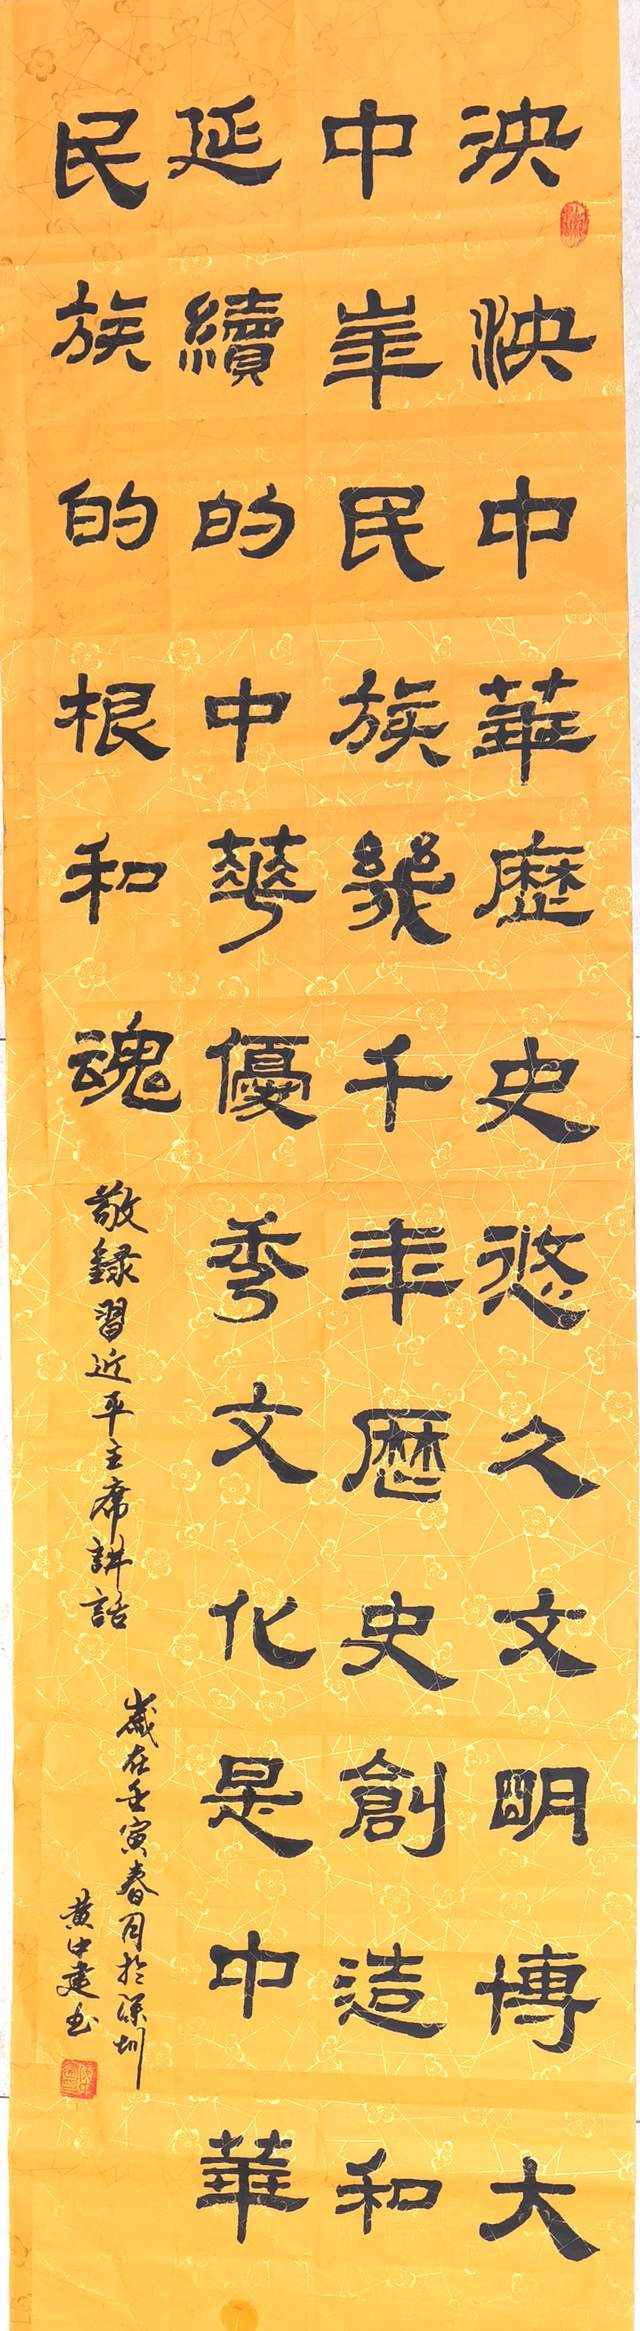 泱泱中華歷史悠久文明博大
中華民族幾千年歷史創造和
延續的中華優秀文化是中華
民族的根和魂
敬錄習近平主席講話
歲在壬寅春月於深圳
黃中建書